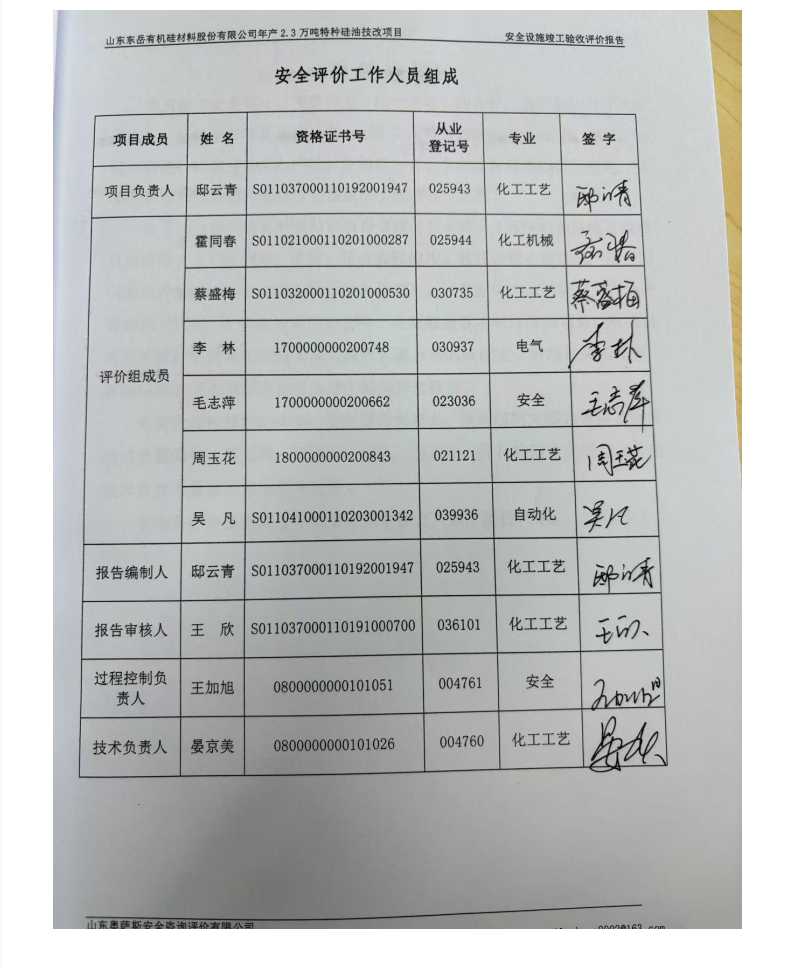 山东东岳有机硅材料股份有限公司年产2.3万吨特种硅油技改项目 安全设施竣工验收评价报告
安全评价工作人员组成
项目成员 姓 名 资格证书号 从业登记号 专业 签 字
项目负责人 邸云青 S011037000110192001947 025943 化工工艺 邸云青
评价组成员
霍同春 S011021000110201000287 025944 化工机械
蔡盛梅 S011032000110201000530 030735 化工工艺 蔡盛梅
李 林 1700000000200748 030937 电气 李林
毛志萍 1700000000200662 023036 安全 毛志萍
周玉花 1800000000200843 021121 化工工艺 周玉花
吴 凡 S011041000110203001342 039936 自动化 吴凡
报告编制人 邸云青 S011037000110192001947 025943 化工工艺 邸云青
报告审核人 王 欣 S011037000110191000700 036101 化工工艺 王欣
过程控制负责人 王加旭 0800000000101051 004761 安全
技术负责人 晏京美 0800000000101026 004760 化工工艺
山东奥萨斯安全咨询评价有限公司